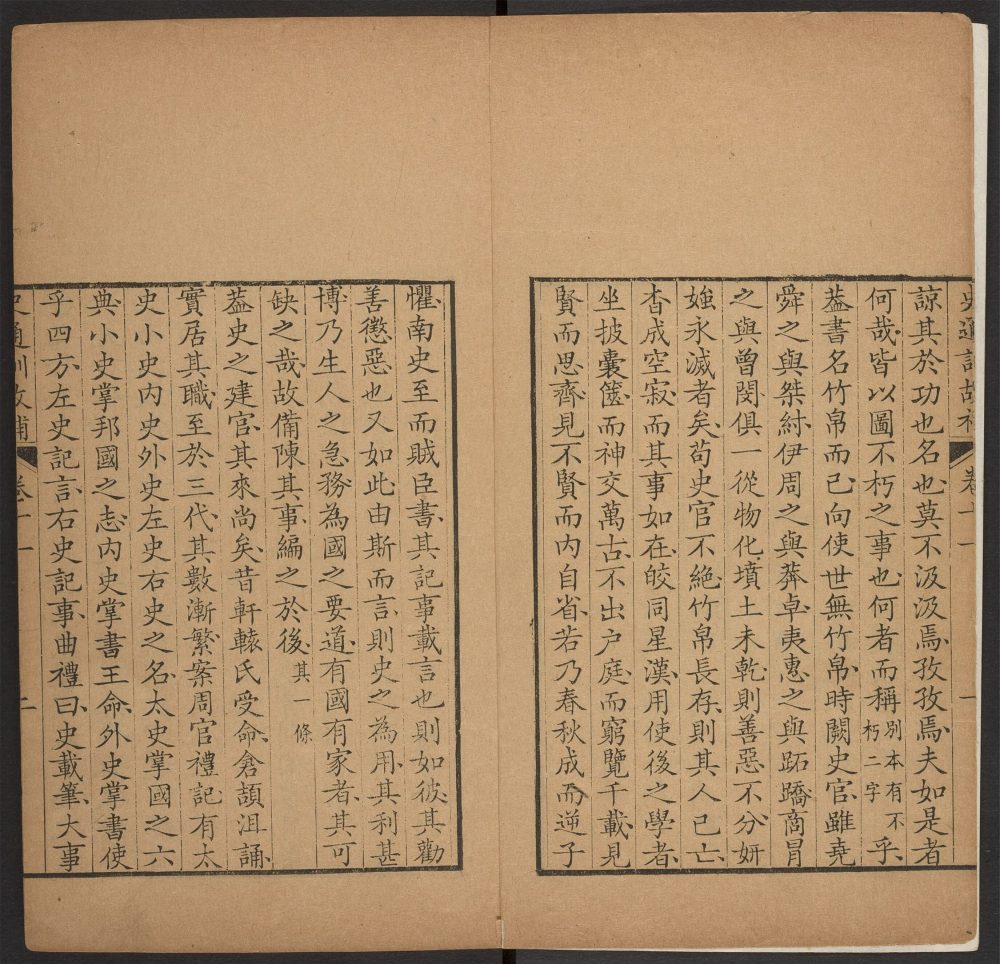 史通訓故補 卷十一 一
諒其於功也名也莫不汲汲焉孜孜焉夫如是者
何哉皆以圖不朽之事也何者而稱別本有不朽二字乎
葢書名竹帛而已向使世無竹帛時闕史官雖堯
舜之與桀紂伊周之與莽卓夷惠之與跖蹻商冒
之與曾閔俱一從物化墳土未乾則善惡不分妍
媸永滅者矣苟史官不絕竹帛長存則其人已亡
杳成空寂而其事如在皎同星漢用使後之學者
坐披囊篋而神交萬古不出户庭而窮覽千載見
賢而思齊見不賢而內自省若乃春秋成而逆子
懼南史至而賊臣書其記事載言也則如彼其勸
善懲惡也又如此由斯而言則史之為用其利甚
博乃生人之急務為國之要道有國有家者其可
缺之哉故備陳其事編之於後其一條
葢史之建官其來尚矣昔軒轅氏受命倉頡沮誦
實居其職至於三代其數漸繁案周官禮記有太
史小史內史外史左史右史之名太史掌國之六
典小史掌邦國之志內史掌書王命外史掌書使
乎四方左史記言右史記事曲禮曰史載筆大事
史通訓故補 卷十一 二